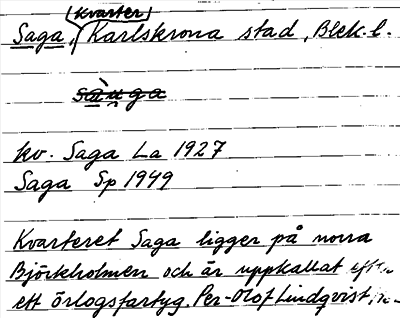 kvarter
Saga, Karlskrona stad, Blek. l.
kv. Saga La 1927
Saga Sp 1949
Kvarteret Saga ligger på norra
Björkholmen och är uppkallat efter
ett örlogsfartyg. Per-Olof Lindqvist,